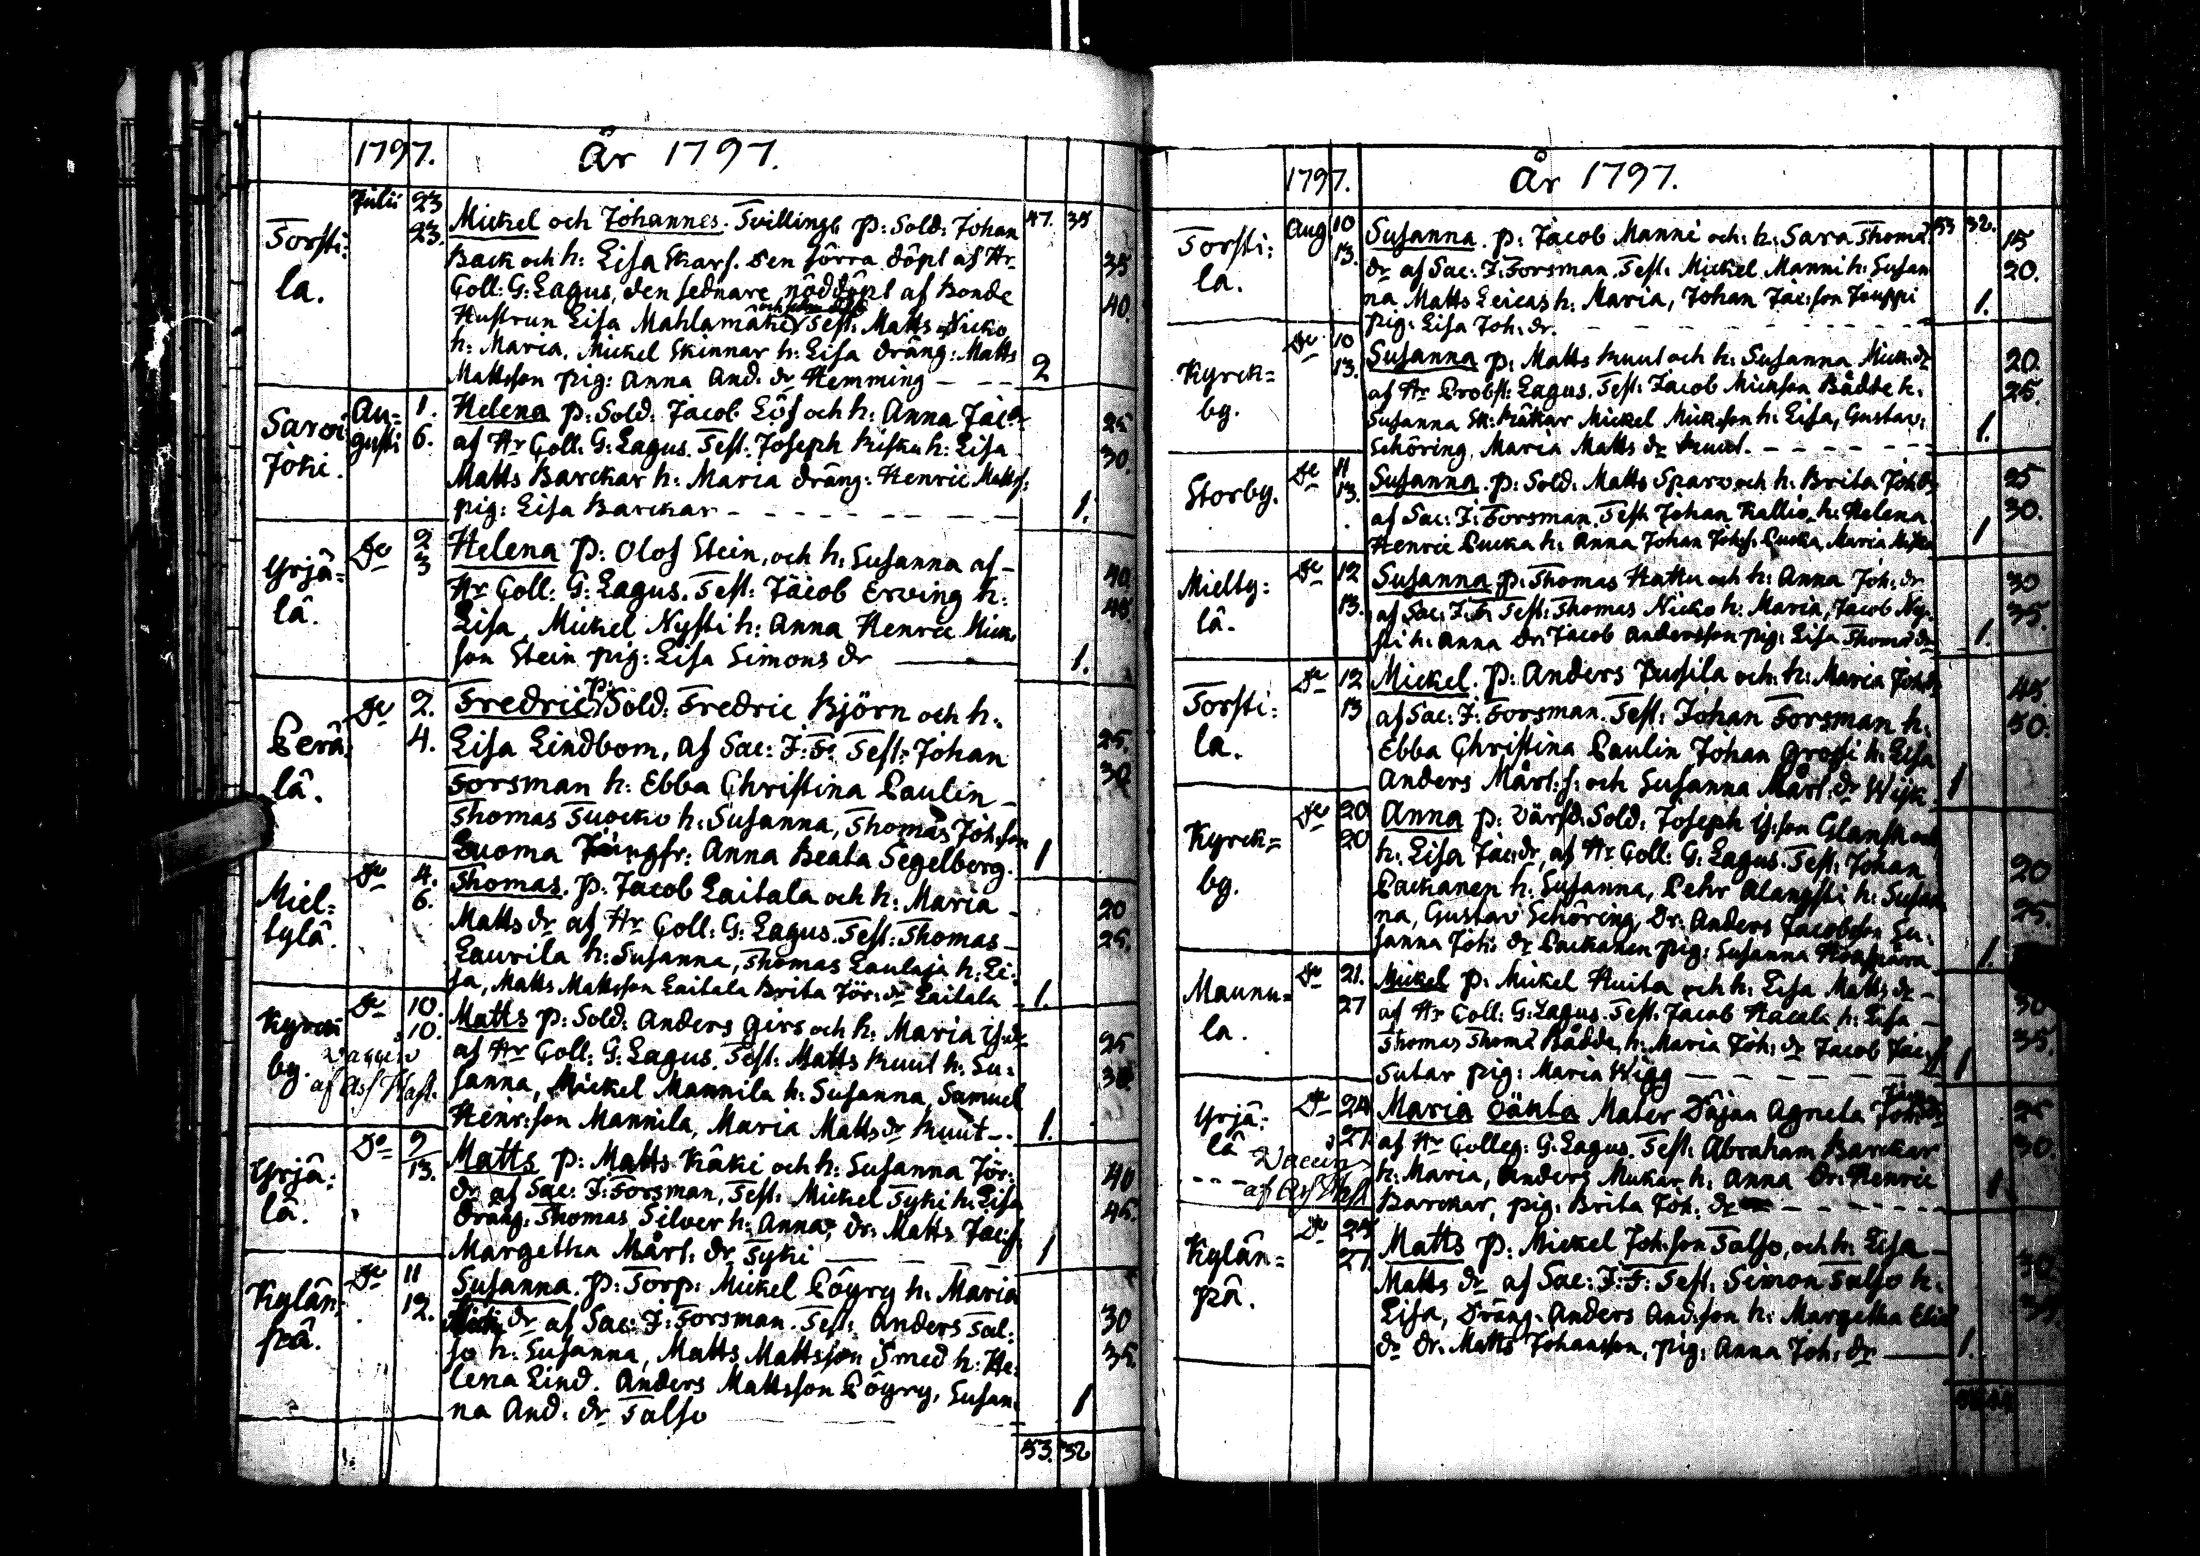 1797. År 1797.
Julii 23
23.
Torsti:
la.
Mickel och Johannes. Tvillingb p: Sold: Johan 47. 35
Back och h: Lisa Skarf. den förra döpt af Hr 35
Coll: G: Lagus, den sednare nöddöpt af Bonde 40.
Hustrun Lisa Mahlamäki Test: Matts Nicko
h: Maria, Mickel Skinnar h: Lisa dräng: Matts
Mattsson pig: Anna And. dr Hemming - - - 2
Sarvi
Joki.
Au-
gusti
1.
6.
Helena p: Sold: Jacob Löf och h: Anna Jac: dr 25
af Hr Coll: G: Lagus. Test: Joseph Kiska h: Lisa 30.
Matts Barckar h: Maria dräng: Henric Matts s:
pig: Lisa Barckar - - - - - - - 1.
Yrjä-
lä.
Do 2
3
Helena p: Olof Stein, och h: Susanna af- 40
Hr Coll: G: Lagus. Test: Jacob Erving h: 45
Lisa, Mickel Nysti h: Anna Henric Mick-
son Stein pig: Lisa Simons dr — 1.
Perä:
lä.
Do 2.
4.
p:
Fredric Sold: Fredric Björn och h:
Lisa Lindbom, af Sac: J: F: Test: Johan 25.
Forsman h: Ebba Christina Paulin - 30
Thomas Tuocko h: Susanna, Thomas Joh:son
Luoma Jungfr: Anna Beata Segelberg. 1
Miel:
tylä.
Do 4.
6.
Thomas. p: Jacob Laitala och h: Maria - 20
Matts dr af Hr Coll: G: Lagus. Test: Thomas - 25.
Laurila h: Susanna, Thomas Laulaja h: Li:
sa, Matts Mattsson Laitala Brita Jör: dr Laitala - 1.
Kyrck
by.
Do 10.
10.
Vaccin
af As: Hast.
Matts p: Sold: Anders Girs och h: Maria 25
af Hr Coll: G: Lagus. Test: Matts Knut h: Su: 30
sanna, Mickel Mannila h: Susanna, Samuel
Henr:son Mannila, Maria Matts dr Knut -. 1.
Yrjä:
lä.
Do 9
13.
Matts p: Matts Käki och h: Susanna Jör: 40
dr af Sac: J: Forsman, Test: Mickel Tyki h: Lisa 45.
dräng: Thomas Silver h: Anna, Dr: Matts Jac:s:
Margetha Mårt: dr Tyki — 1
Kylän:
pä.
Do 11
12.
Susanna. p: Torp: Mickel Pöyry h: Maria
dr af Sac: J: Forsman. Test: Anders Tal: 30
so h: Susanna, Matts Mattsson Smed h: He: 35.
lena Lind. Anders Mattsson Pöyry, Susan:
na And: dr Talso 1
53. 32
1797. År 1797.
Torsti:
la.
Aug 10
13.
Susanna. p: Jacob Manni och: h: Sara Thoma 53 32. 15
dr af Sac: J: Forsman. Test: Mickel Manni h: Susan 20.
na Matts Leicas h: Maria, Johan Jac:son Jouppi 1.
pig: Lisa Joh: dr. - - - - - - -
Kyrck=
by.
Do 10
13.
Susanna p: Matts Knut och h: Susanna Mick: dr 20.
af Hr Probst: Lagus. Test: Jacob Mickson Bådde h: 25.
Susanna Mickel Mickson h: Lisa, Gustav:
Schöring, Maria Matts dr Knut. - - - - 1.
Storby.
Do 11
13.
Susanna. p: Sold: Matts Sparv och h: Brita Joh: dr 25
af Sac: J: Forsman. Test: Johan Kallio h: Helena 30.
Henric Pucka h: Anna Johan Joh:s: Pucka, Maria 1
Mielty:
lä.
Do 12
13.
Susanna p: Thomas Hattu och h: Anna Joh: dr 30
af Sac: J: F: Test: Thomas Nicko h: Maria, Jacob Ny- 35.
sti h: Anna Dr: Jacob Andersson pig: Lisa Thoma dr 1.
Torsti:
la.
Do 12
13
Mickel. p: Anders Pussila och: h: Maria Joh: dr 45.
af Sac: J: Forsman. Test: Johan Forsman h: 50.
Ebba Christina Paulin Johan Grossi h: Lisa
Anders Mårt: s: och Susanna Mårt: dr Wijk. 1
Kyrck=
by.
Do 20
20
Anna p: Värfd: Sold: Joseph Glansk och
h: Lisa Jac: dr, af Hr Coll: G: Lagus. Test: Johan 20
Packanen h: Susanna, Pehr Alangsti h: Susan 25.
na, Gustav Schöring, Dr: Anders Jacobsson Su:
sanna Joh: dr Packanen pig: Susanna 1.
Maunu=
la.
Do 21.
27
Mickel p: Mickel Huita och h: Lisa Matts dr - 30
af Hr Coll: G: Lagus. Test: Jacob Hacala h: Lisa - 35.
Thomas Thoma Bådde, h: Maria Joh: dr Jacob Jac:s
Sutar pig: Maria Wigg — — — — 1
Yrjä:
lä
Do 24
27
Vaccin
af As: Hast
Maria Oäkta Mater Däjan Agneta dr 25
af Hr Colleg: G: Lagus. Test: Abraham Barckar 30.
h: Maria, Anders Mickar h: Anna Dr: Henric 1.
Barckar, pig: Brita Joh: dr - - - - -
Kylän=
pä.
Do 25
27
Matts p: Mickel Joh:son Talso, och h: Lisa - 30
Matts dr af Sac: J: F: Test: Simon Talso h: 35.
Lisa, Dräng: Anders And:son h: Margetha
dr Dr: Matts Johansson, pig: Anna Joh: dr — 1.